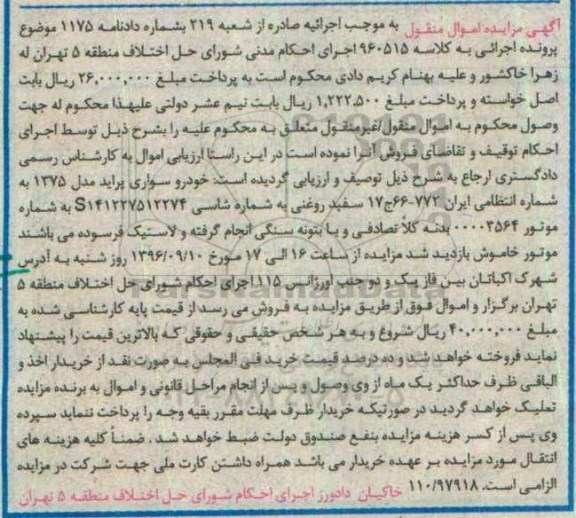 آگهی مزایده اموال منقول به موجب اجرائیه صادره از شعبه ۲۱۹ بشماره دادنامه ۱۱۷۵ موضوع
پرونده اجرائی به کلاسه ۹۶۰۵۱۵ اجرای احکام مدنی شورای حل اختلاف منطقه ۵ تهران له
زهرا خاکشور و علیه بهنام کریم دادی محکوم است به پرداخت مبلغ ۲۶,۰۰۰,۰۰۰ ریال بابت
اصل خواسته و پرداخت مبلغ ۱,۲۲۲,۵۰۰ ریال بابت نیم عشر دولتی علیهذا محکوم له جهت
وصول محکوم به اموال منقول/غیرمنقول متعلق به محکوم علیه را بشرح ذیل توسط اجرای
احکام توقیف و تقاضای فروش آنرا نموده است در این راستا ارزیابی اموال به کارشناس رسمی
دادگستری ارجاع به شرح ذیل توصیف و ارزیابی گردیده است: خودرو سواری پراید مدل ۱۳۷۵ به
شماره انتظامی ایران ۷۷۲-۶۶ج۱۷ سفید روغنی به شماره شاسی S۱۴۱۲۲۷۵۱۲۲۷۴ به شماره
موتور ۰۰۰۰۳۵۶۴ بدنه کلاً تصادفی و با بتونه سنگی انجام گرفته و لاستیک فرسوده می باشند
موتور خاموش بازدید شد مزایده از ساعت ۱۶ الی ۱۷ مورخ ۱۳۹۶/۰۹/۱۰ روز شنبه به آدرس
شهرک اکباتان بین فاز یک و دو جنب اورژانس ۱۱۵ اجرای احکام شورای حل اختلاف منطقه ۵
تهران برگزار و اموال فوق از طریق مزایده به فروش می رسد از قیمت پایه کارشناسی شده به
مبلغ ۴۰,۰۰۰,۰۰۰ ریال شروع و به هر شخص حقیقی و حقوقی که بالاترین قیمت را پیشنهاد
نماید فروخته خواهد شد و ده درصد قیمت خرید فی المجلس به صورت نقد از خریدار اخذ و
الباقی ظرف حداکثر یک ماه از وی وصول و پس از انجام مراحل قانونی و اموال به برنده مزایده
تملیک خواهد گردید در صورتیکه خریدار ظرف مهلت مقرر بقیه وجه را پرداخت ننماید سپرده
وی پس از کسر هزینه مزایده بنفع صندوق دولت ضبط خواهد شد . ضمناً کلیه هزینه های
انتقال مورد مزایده بر عهده خریدار می باشد همراه داشتن کارت ملی جهت شرکت در مزایده
الزامی است. ۱۱۰/۹۷۹۱۸ خاکیان دادورز اجرای احکام شورای حل اختلاف منطقه ۵ تهران